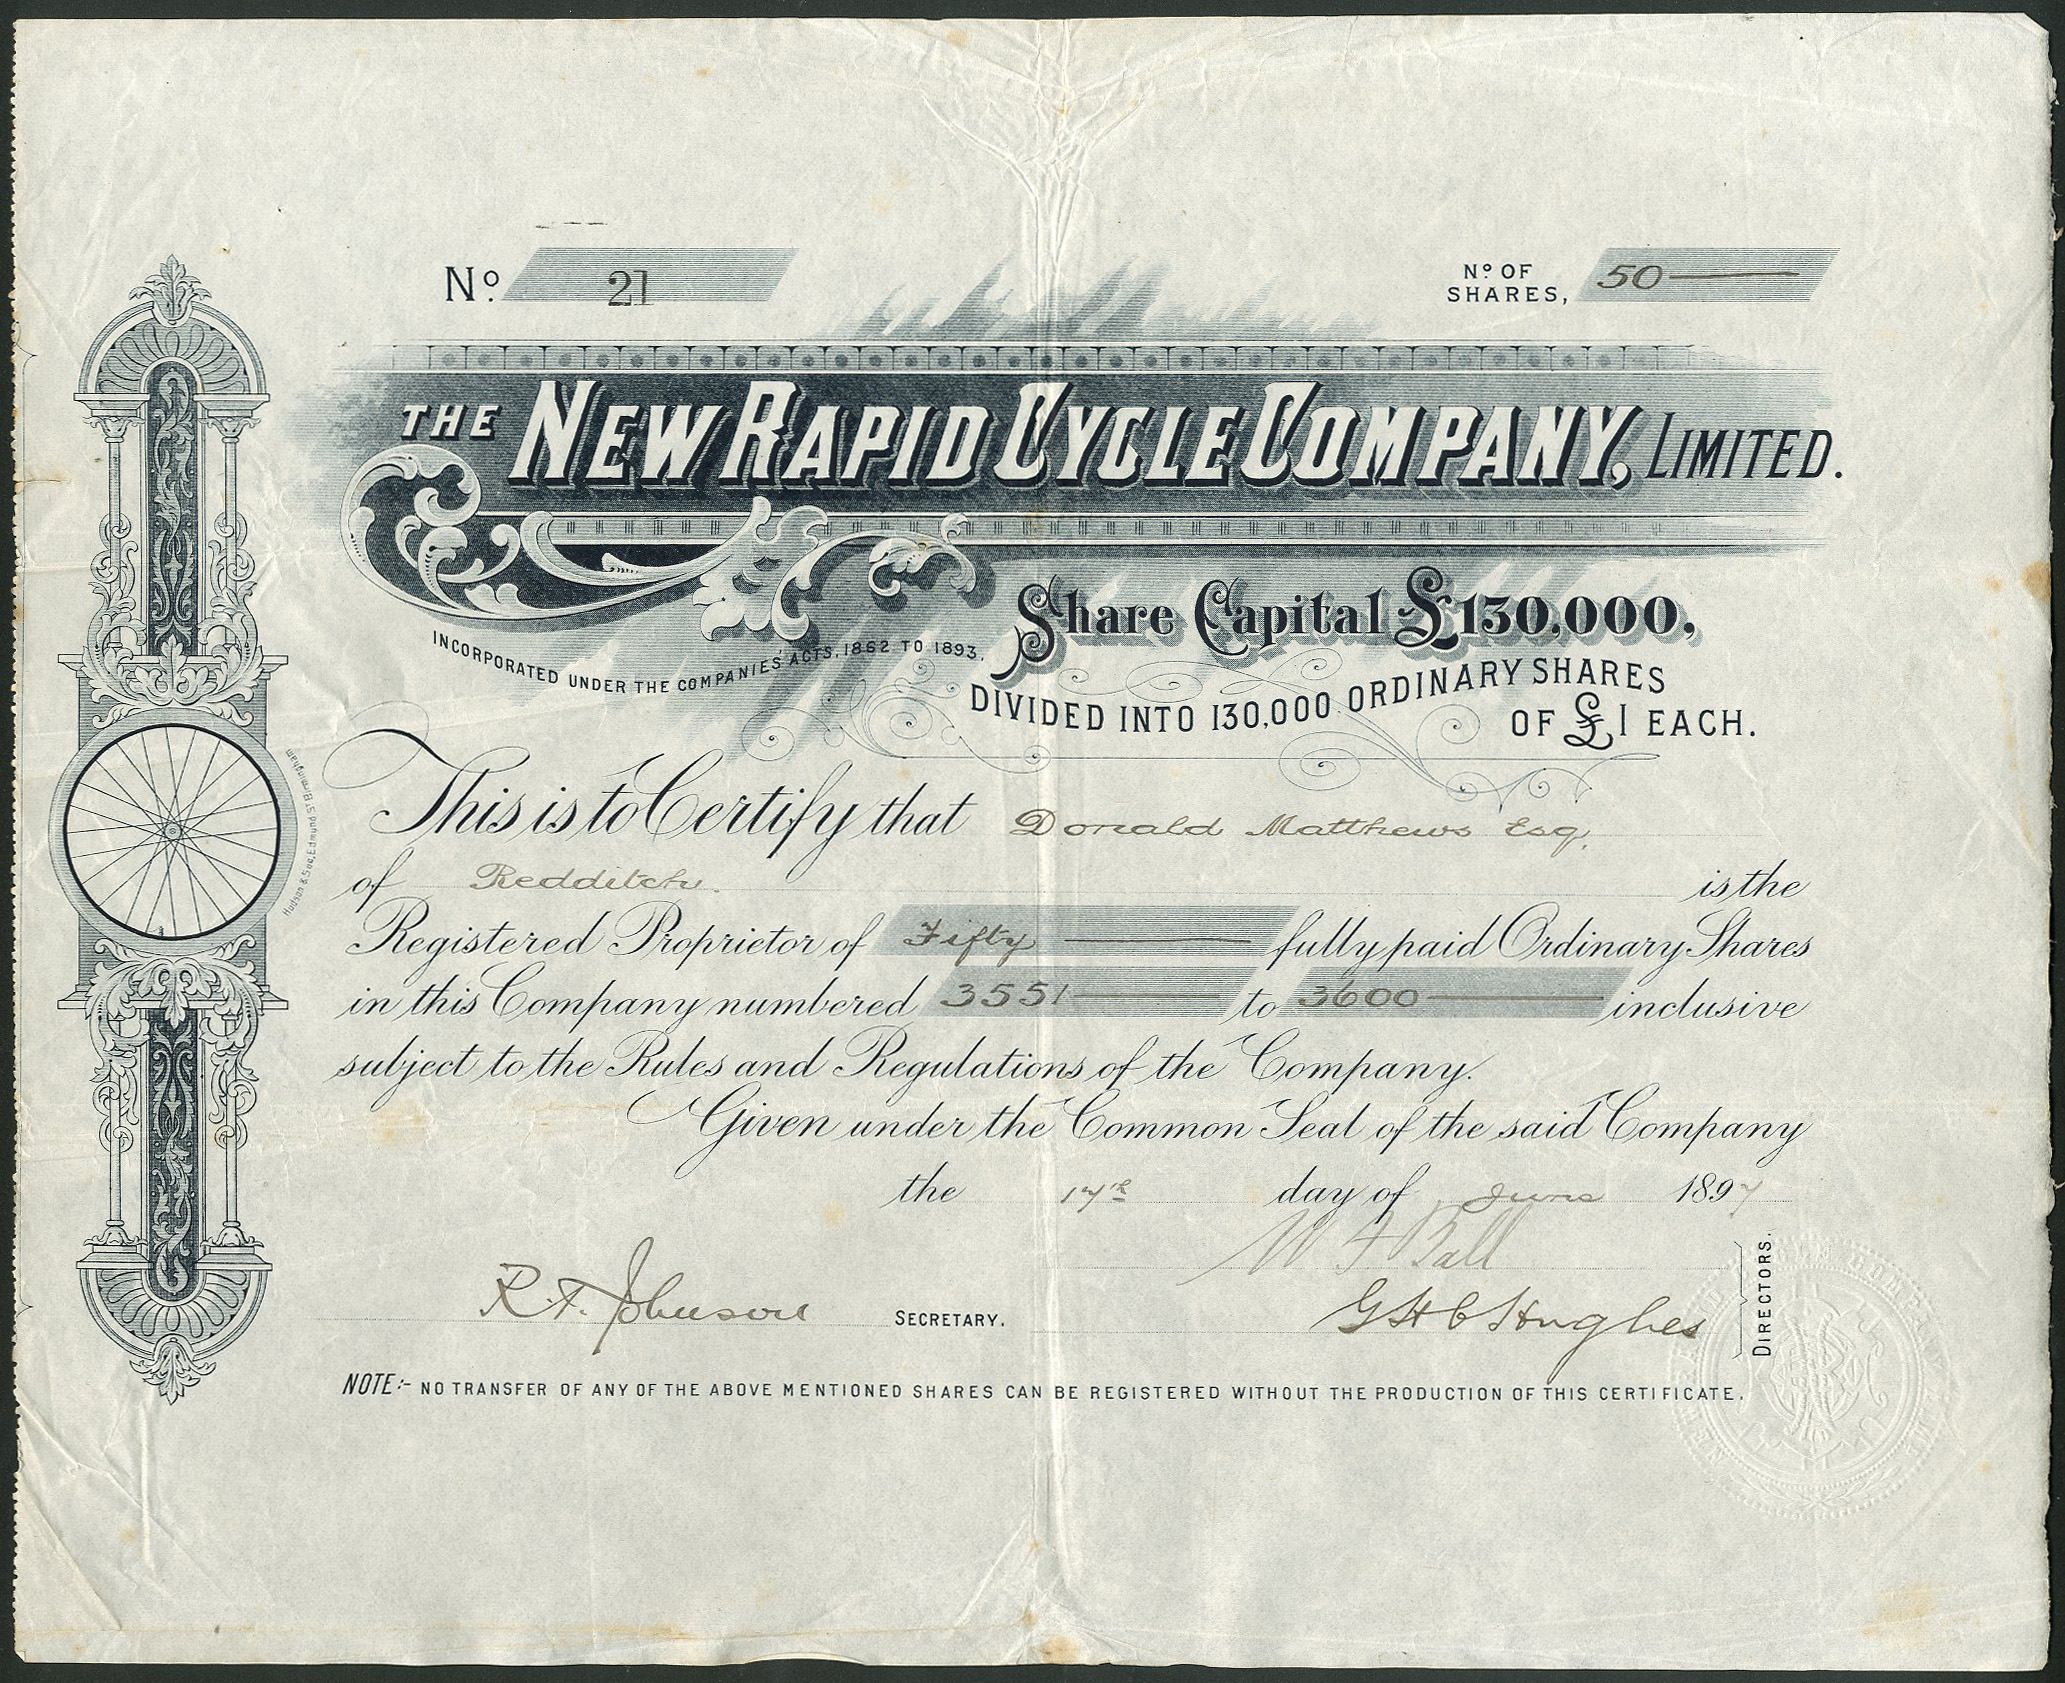 No. 21
No. OF SHARES, 50
THE NEW RAPID CYCLE COMPANY, LIMITED.
INCORPORATED UNDER THE COMPANIES' ACTS, 1862 TO 1893.
Share Capital £130,000,
DIVIDED INTO 130,000 ORDINARY SHARES
OF £1 EACH.
This is to Certify that Donald Matthews Esq.
of Redditch. is the
Registered Proprietor of Fifty fully paid Ordinary Shares
in this Company numbered 3551 to 3600 inclusive
subject to the Rules and Regulations of the Company.
Given under the Common Seal of the said Company
the 17th day of June 1897
W F Ball
R.A. Johnson SECRETARY.
G H C Hughes
DIRECTORS.
NOTE:- NO TRANSFER OF ANY OF THE ABOVE MENTIONED SHARES CAN BE REGISTERED WITHOUT THE PRODUCTION OF THIS CERTIFICATE.
Hudson & Son, Edmund St. Birmingham